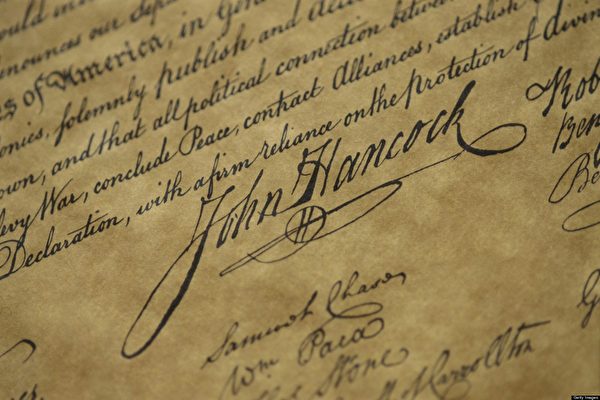 nounces our
s of America, in Gen
onies, solemnly publish and
own, and that all political connection betwe
evy War, conclude Peace, contract Alliances, establish
Declaration, with a firm reliance on the protection of divin
John Hancock
Rob
Ben
Be
Samuel Chase
Wm Paca
Stone
Carrollton
Getty Images